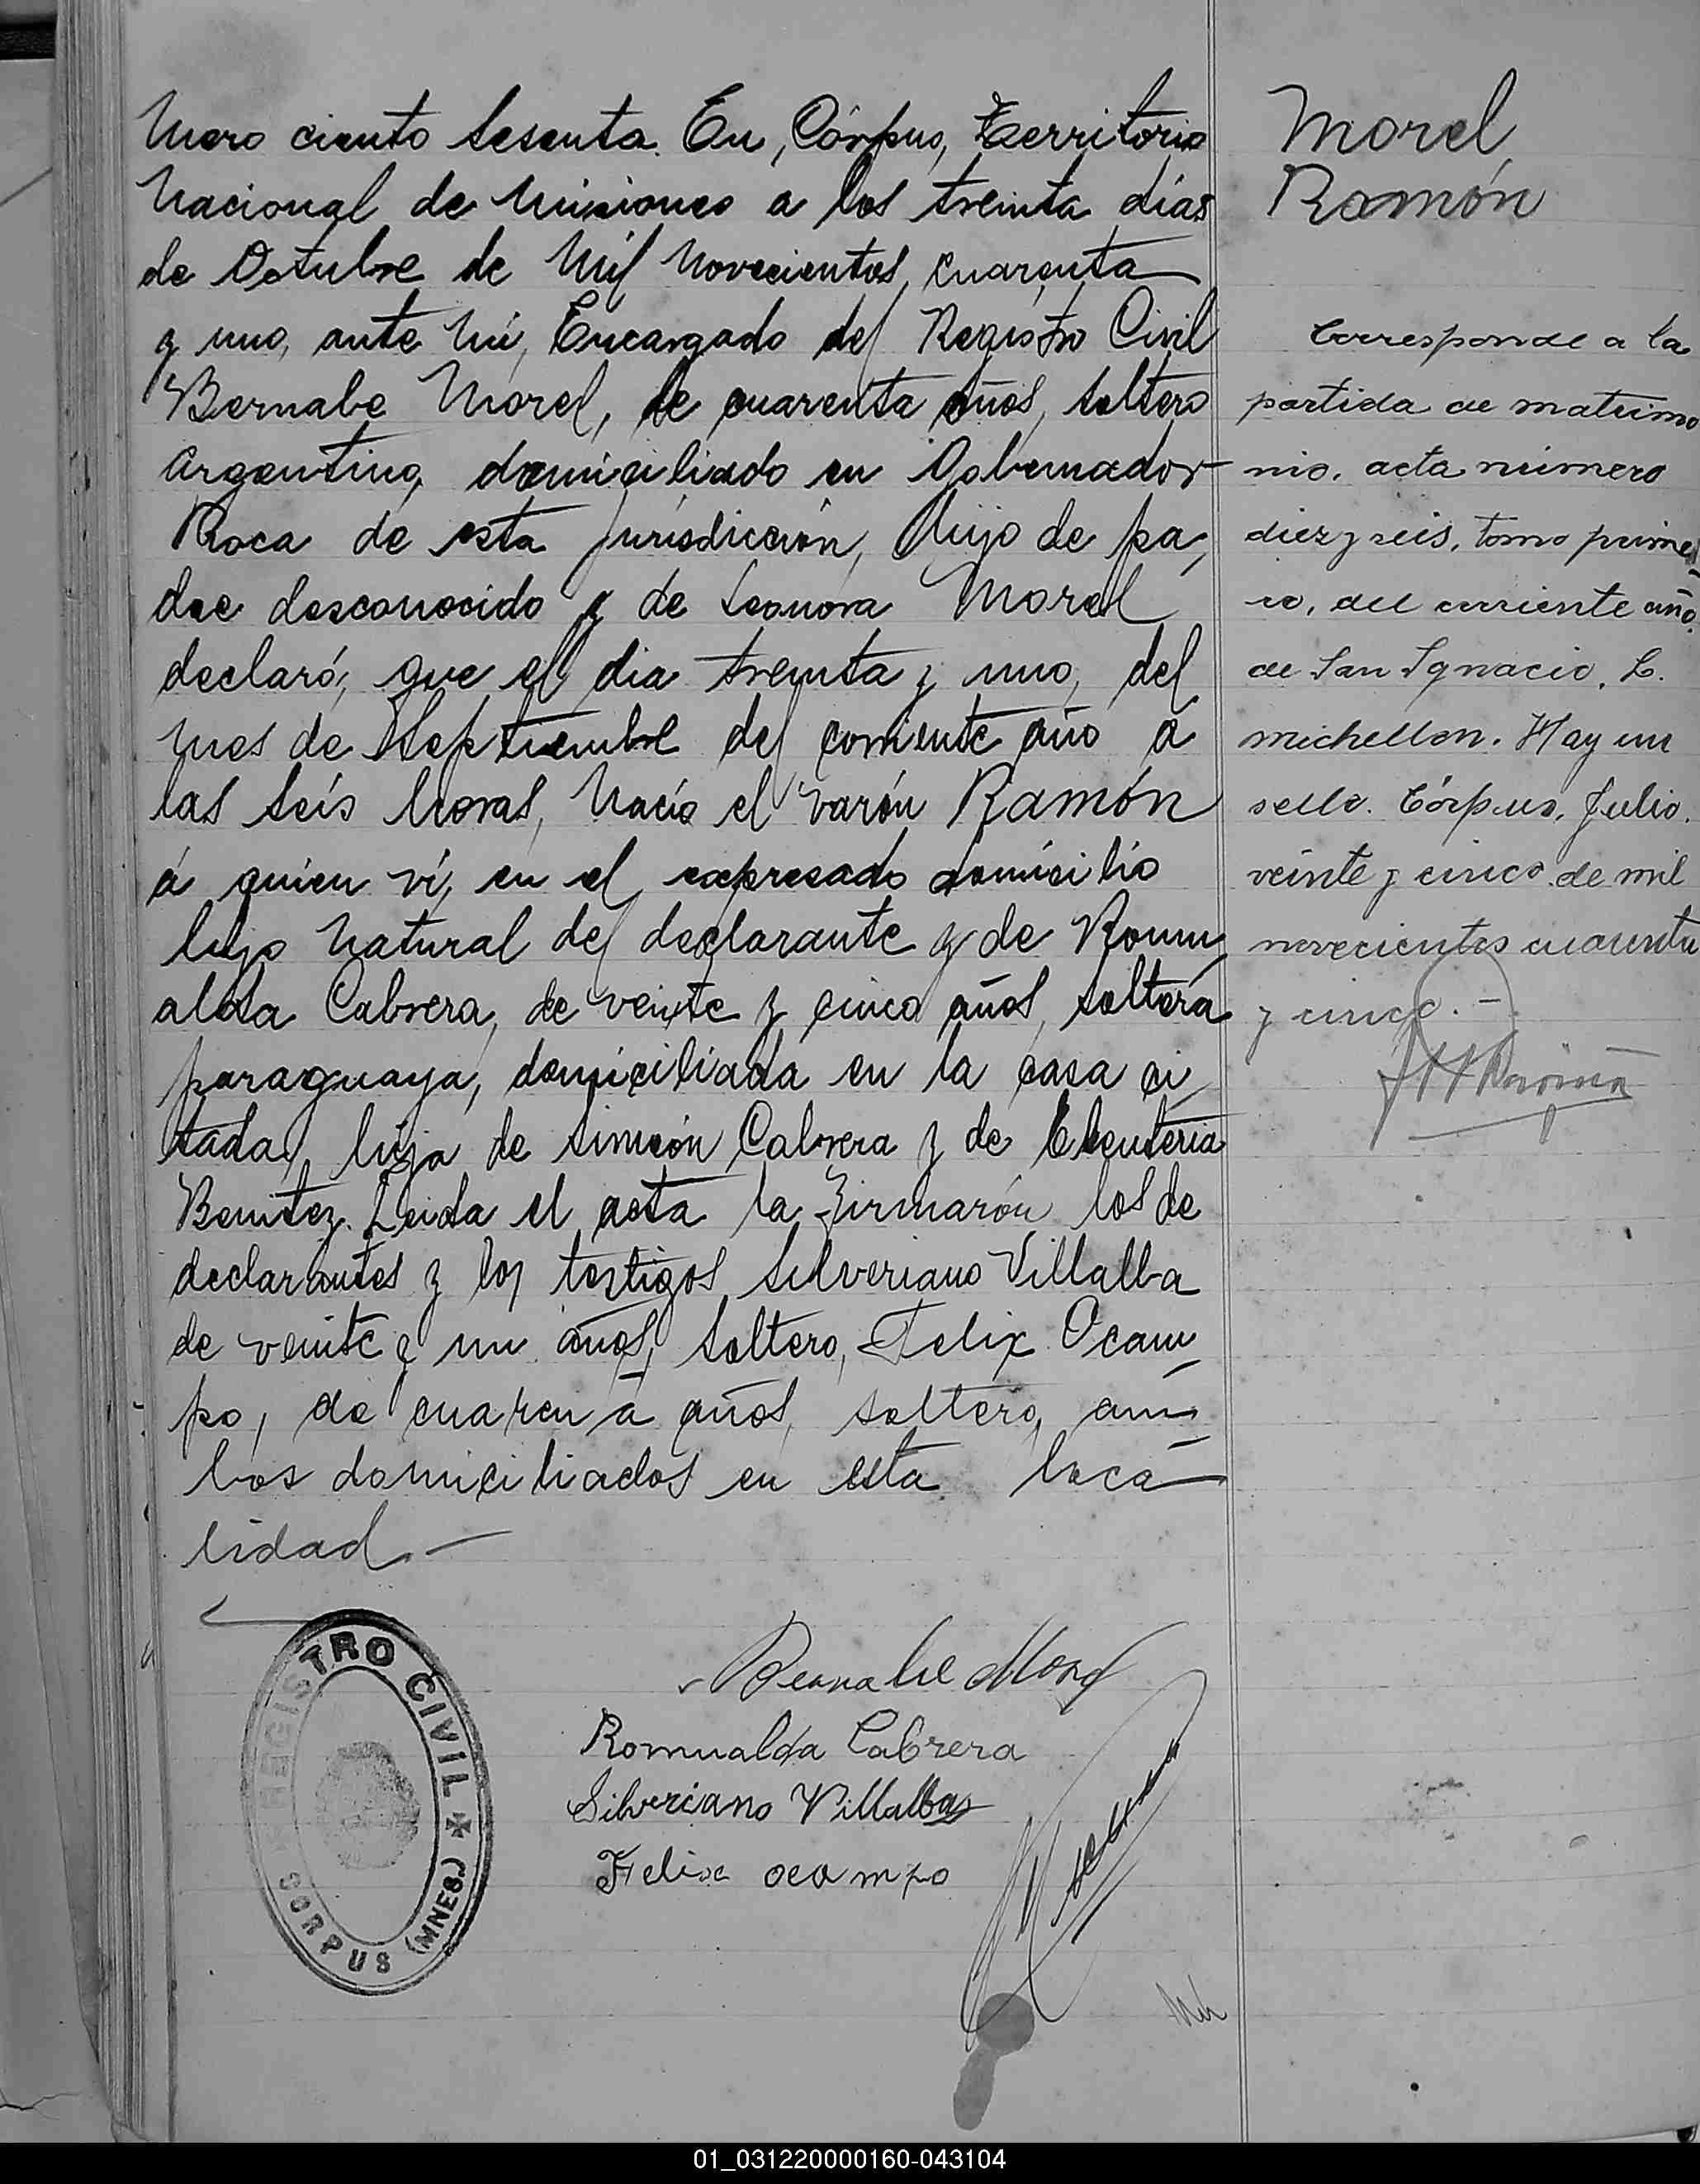 Mero ciento sesenta. En, Córpus, Territorio
Nacional de Misiones a los treinta días
de Octubre de Mil Novecientos, cuarenta
y uno, ante Mí, Encargado del Registro Civil
Bernabe Morel, de cuarenta años, soltero
argentino, domiciliado en Gobernador
Roca de esta jurisdicción, hijo de pa-
dre desconocido y de Leonora Morel
declaró; que el dia treinta y uno, del
mes de Septiembre del corriente año a
las seís horas, Nacío el varón Ramón
á quien ví, en el expresado domicilio
hijo Natural del declarante y de Romu-
alda Cabrera, de veinte y cinco años, soltera
paraguaya, domiciliada en la casa ci-
tada, hija de Simeón Cabrera y de Eleuteria
Benitez. Leida el acta la firmarón los de
declarantes y los testigos Silveriano Villalba
de veinte y un años, soltero, Felix Ocam-
po, de cuaren a años, soltero, am-
bos domiciliados en esta loca-
lidad.—
Morel
Ramón
Corresponde a la
partida de matrimo
nio, acta número
diez y seis, tomo prime-
ro, del corriente año
de San Ignacio. L.
michellon. Hay un
sello. Córpus, Julio
veinte y cinco de mil
novecientos cuarenta
y cinco.—
Bernabe Morel
Romualda Cabrera
Silveriano Villalba
Felix ocampo
REGISTRO CIVIL
CORPUS (MNES.)
01_031220000160-043104